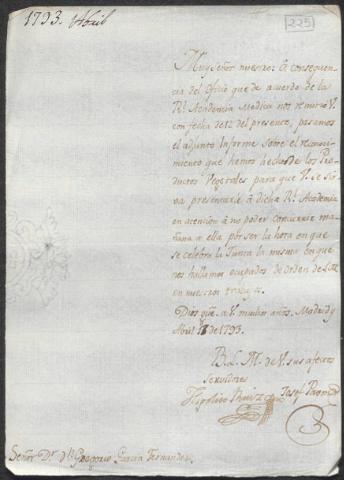 1793. Abril
225
Muy Señor nuestro: A consequen-
cia del Oficio que de acuerdo de la
Rl. Academia Medica nos remitió V.
con fecha de 12 del presente, pasamos
el adjunto Informe sobre el reconoci-
miento que hemos hecho de los Pro-
ductos Vegetales para que V. se sir-
va presentarle á dicha Rl. Academia
en atencion á no poder concurrir ma-
ñana á ella por ser la hora en que
se celebra la Junta la misma en que
nos hallamos ocupados de orden de S.M.
en nuestros trabajos.
Dios gũe. á V. muchos años. Madrid y
Abril de 1793.
B. L. M. de V. sus afectos
servidores
Hipolito Ruiz Josef Pavon
3
Señor Dr. Dn. Gregorio Garcia Fernandez.